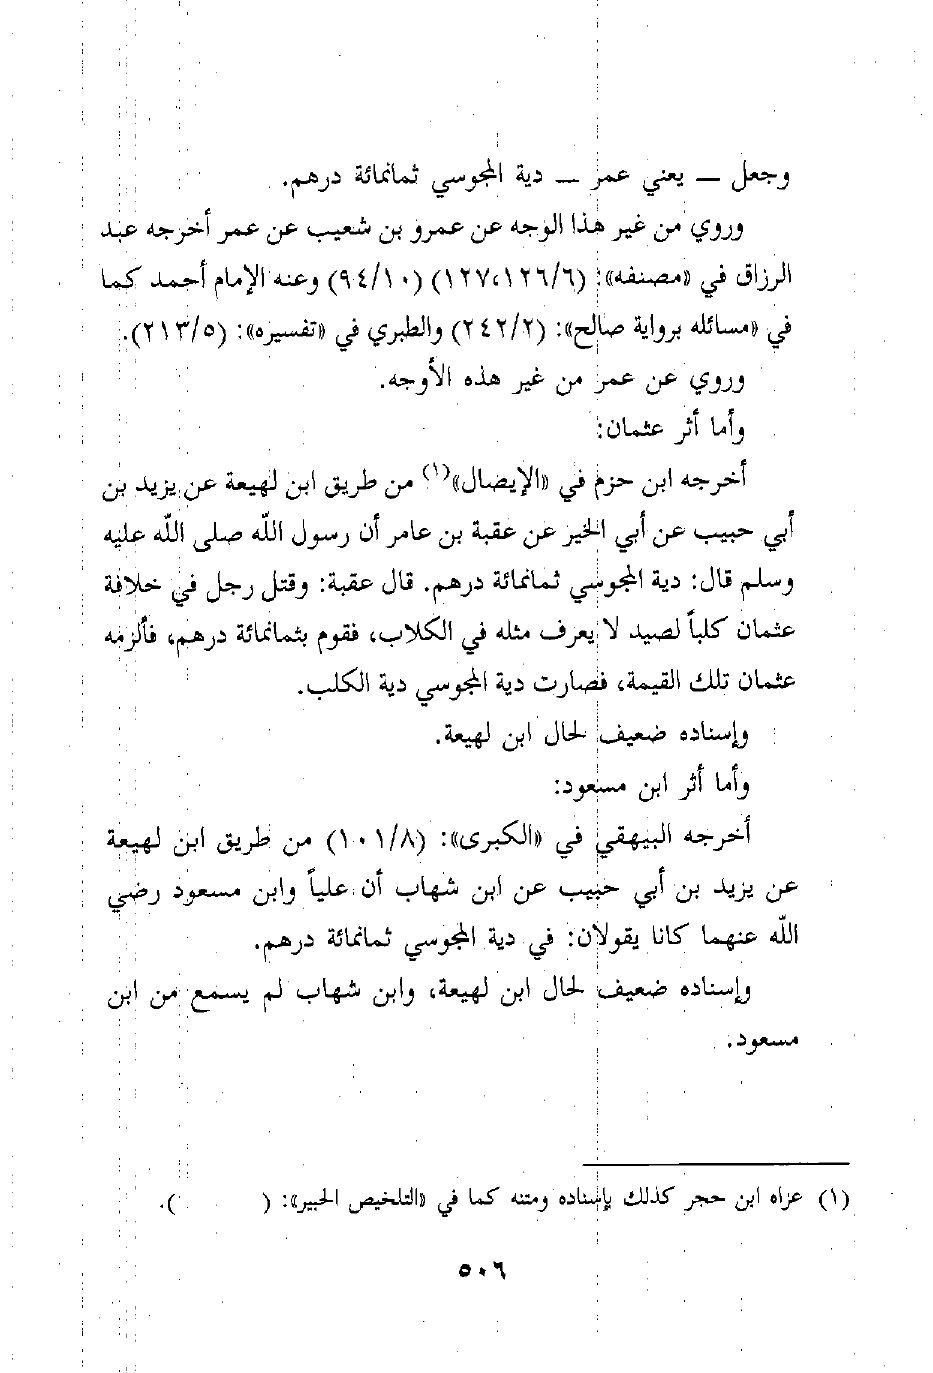 وجعل — يعني عمر — دية المجوسي ثمانمائة درهم.
وروي من غير هذا الوجه عن عمرو بن شعيب عن عمر أخرجه عبد
الرزاق في «مصنفه»: (١٢٧،١٢٦/٦) (٩٤/١٠) وعنه الإمام أحمد كما
في «مسائله برواية صالح»: (٢٤٢/٢) والطبري في «تفسيره»: (٢١٣/٥).
وروي عن عمر من غير هذه الأوجه.
وأما أثر عثمان:
أخرجه ابن حزم في «الإيصال»(١) من طريق ابن لهيعة عن يزيد بن
أبي حبيب عن أبي الخير عن عقبة بن عامر أن رسول الله صلى الله عليه
وسلم قال: دية المجوسي ثمانمائة درهم. قال عقبة: وقتل رجل في خلافة
عثمان كلباً لصيد لا يعرف مثله في الكلاب، فقوم بثمانمائة درهم، فألزمه
عثمان تلك القيمة، فصارت دية المجوسي دية الكلب.
وإسناده ضعيف لحال ابن لهيعة.
وأما أثر ابن مسعود:
أخرجه البيهقي في «الكبرى»: (١٠١/٨) من طريق ابن لهيعة
عن يزيد بن أبي حبيب عن ابن شهاب أن علياً وابن مسعود رضي
الله عنهما كانا يقولان: في دية المجوسي ثمانمائة درهم.
وإسناده ضعيف لحال ابن لهيعة، وابن شهاب لم يسمع من ابن
مسعود.
(١) عزاه ابن حجر كذلك بإسناده ومتنه كما في «التلخيص الحبير»: (        ).
٥٠٦